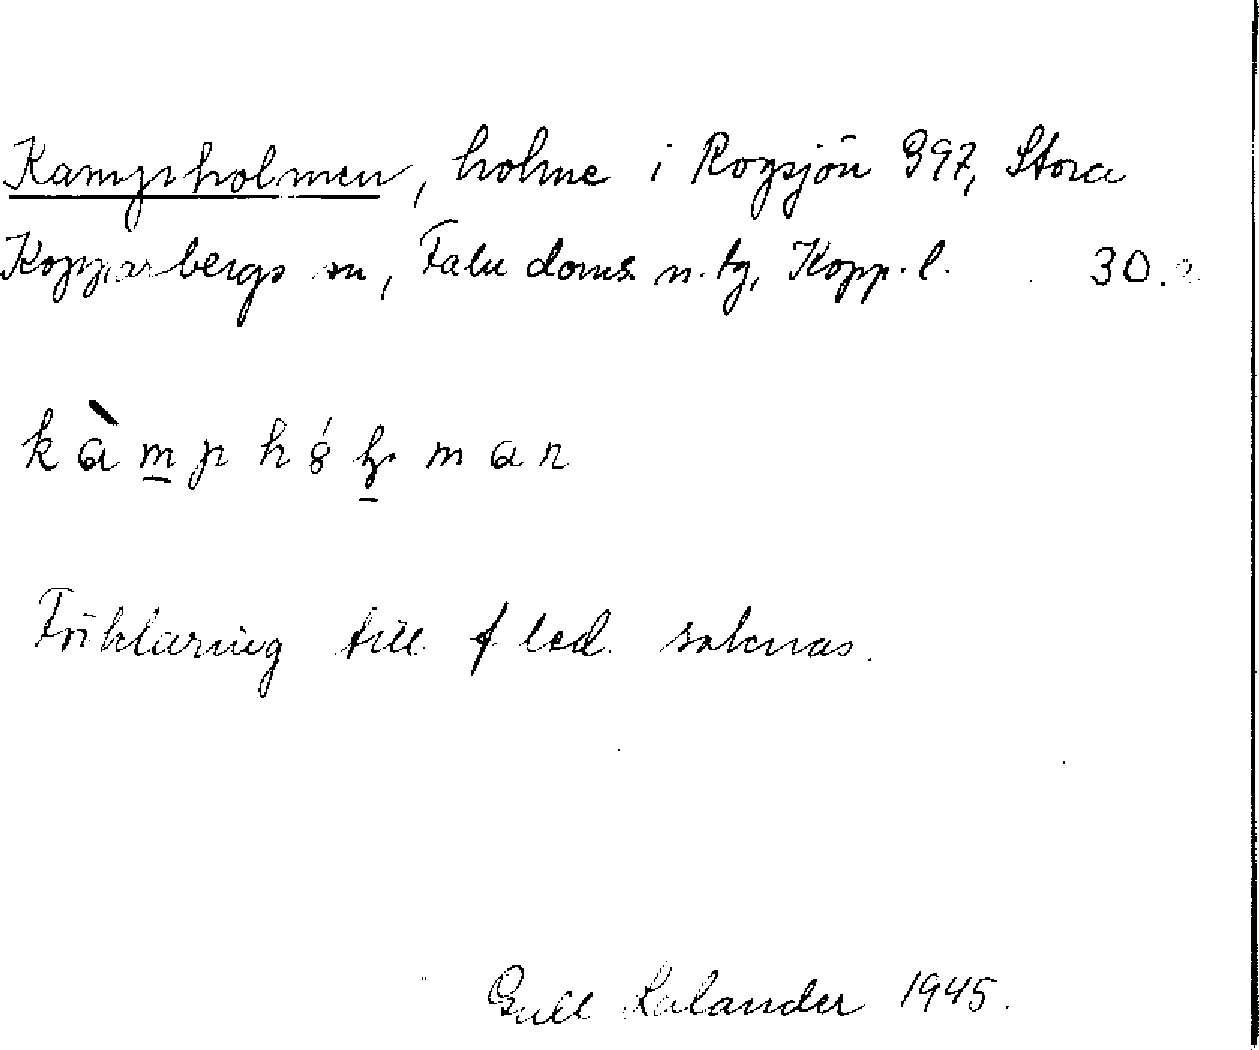 Kampsholmen, holme i Rogsjön 397, Stora
Kopparbergs sn, Falu doms. n. tg, Kopp. l. 30.
Förklaring till f led. saknas.
Gull Kalander 1945.